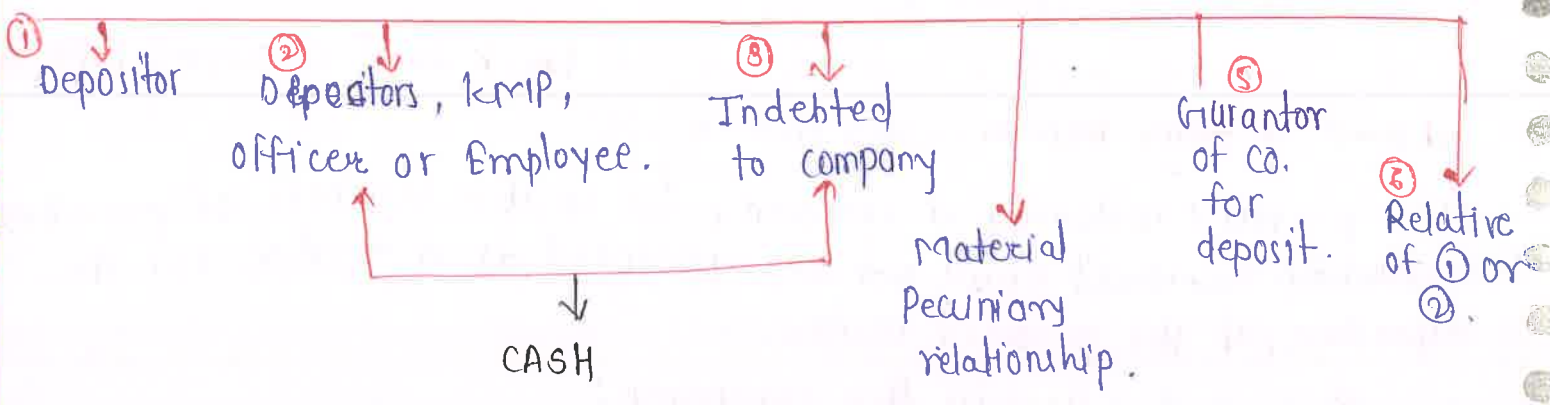 ① Depositor
② Depositors, KMP,
officer or Employee.
③ Indebted
to company
Material
Pecuniary
relationship.
⑤ Gurantor
of co.
for
deposit.
⑥ Relative
of ① or
②.
CASH